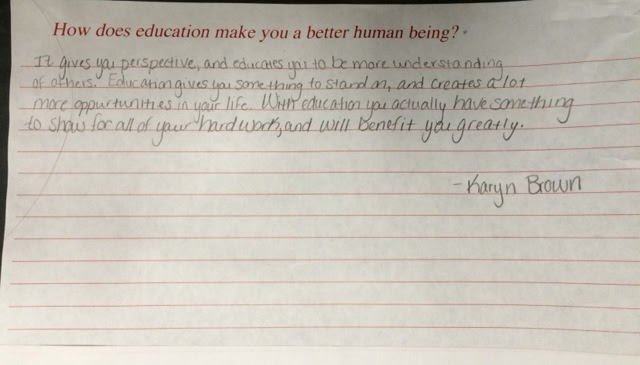 How does education make you a better human being?
It gives you perspective, and educates you to be more understanding
of others. Education gives you something to stand on, and creates a lot
more oppurtunities in your life. With education you actually have something
to show for all of your hard work, and will benefit you greatly.
- Karyn Brown